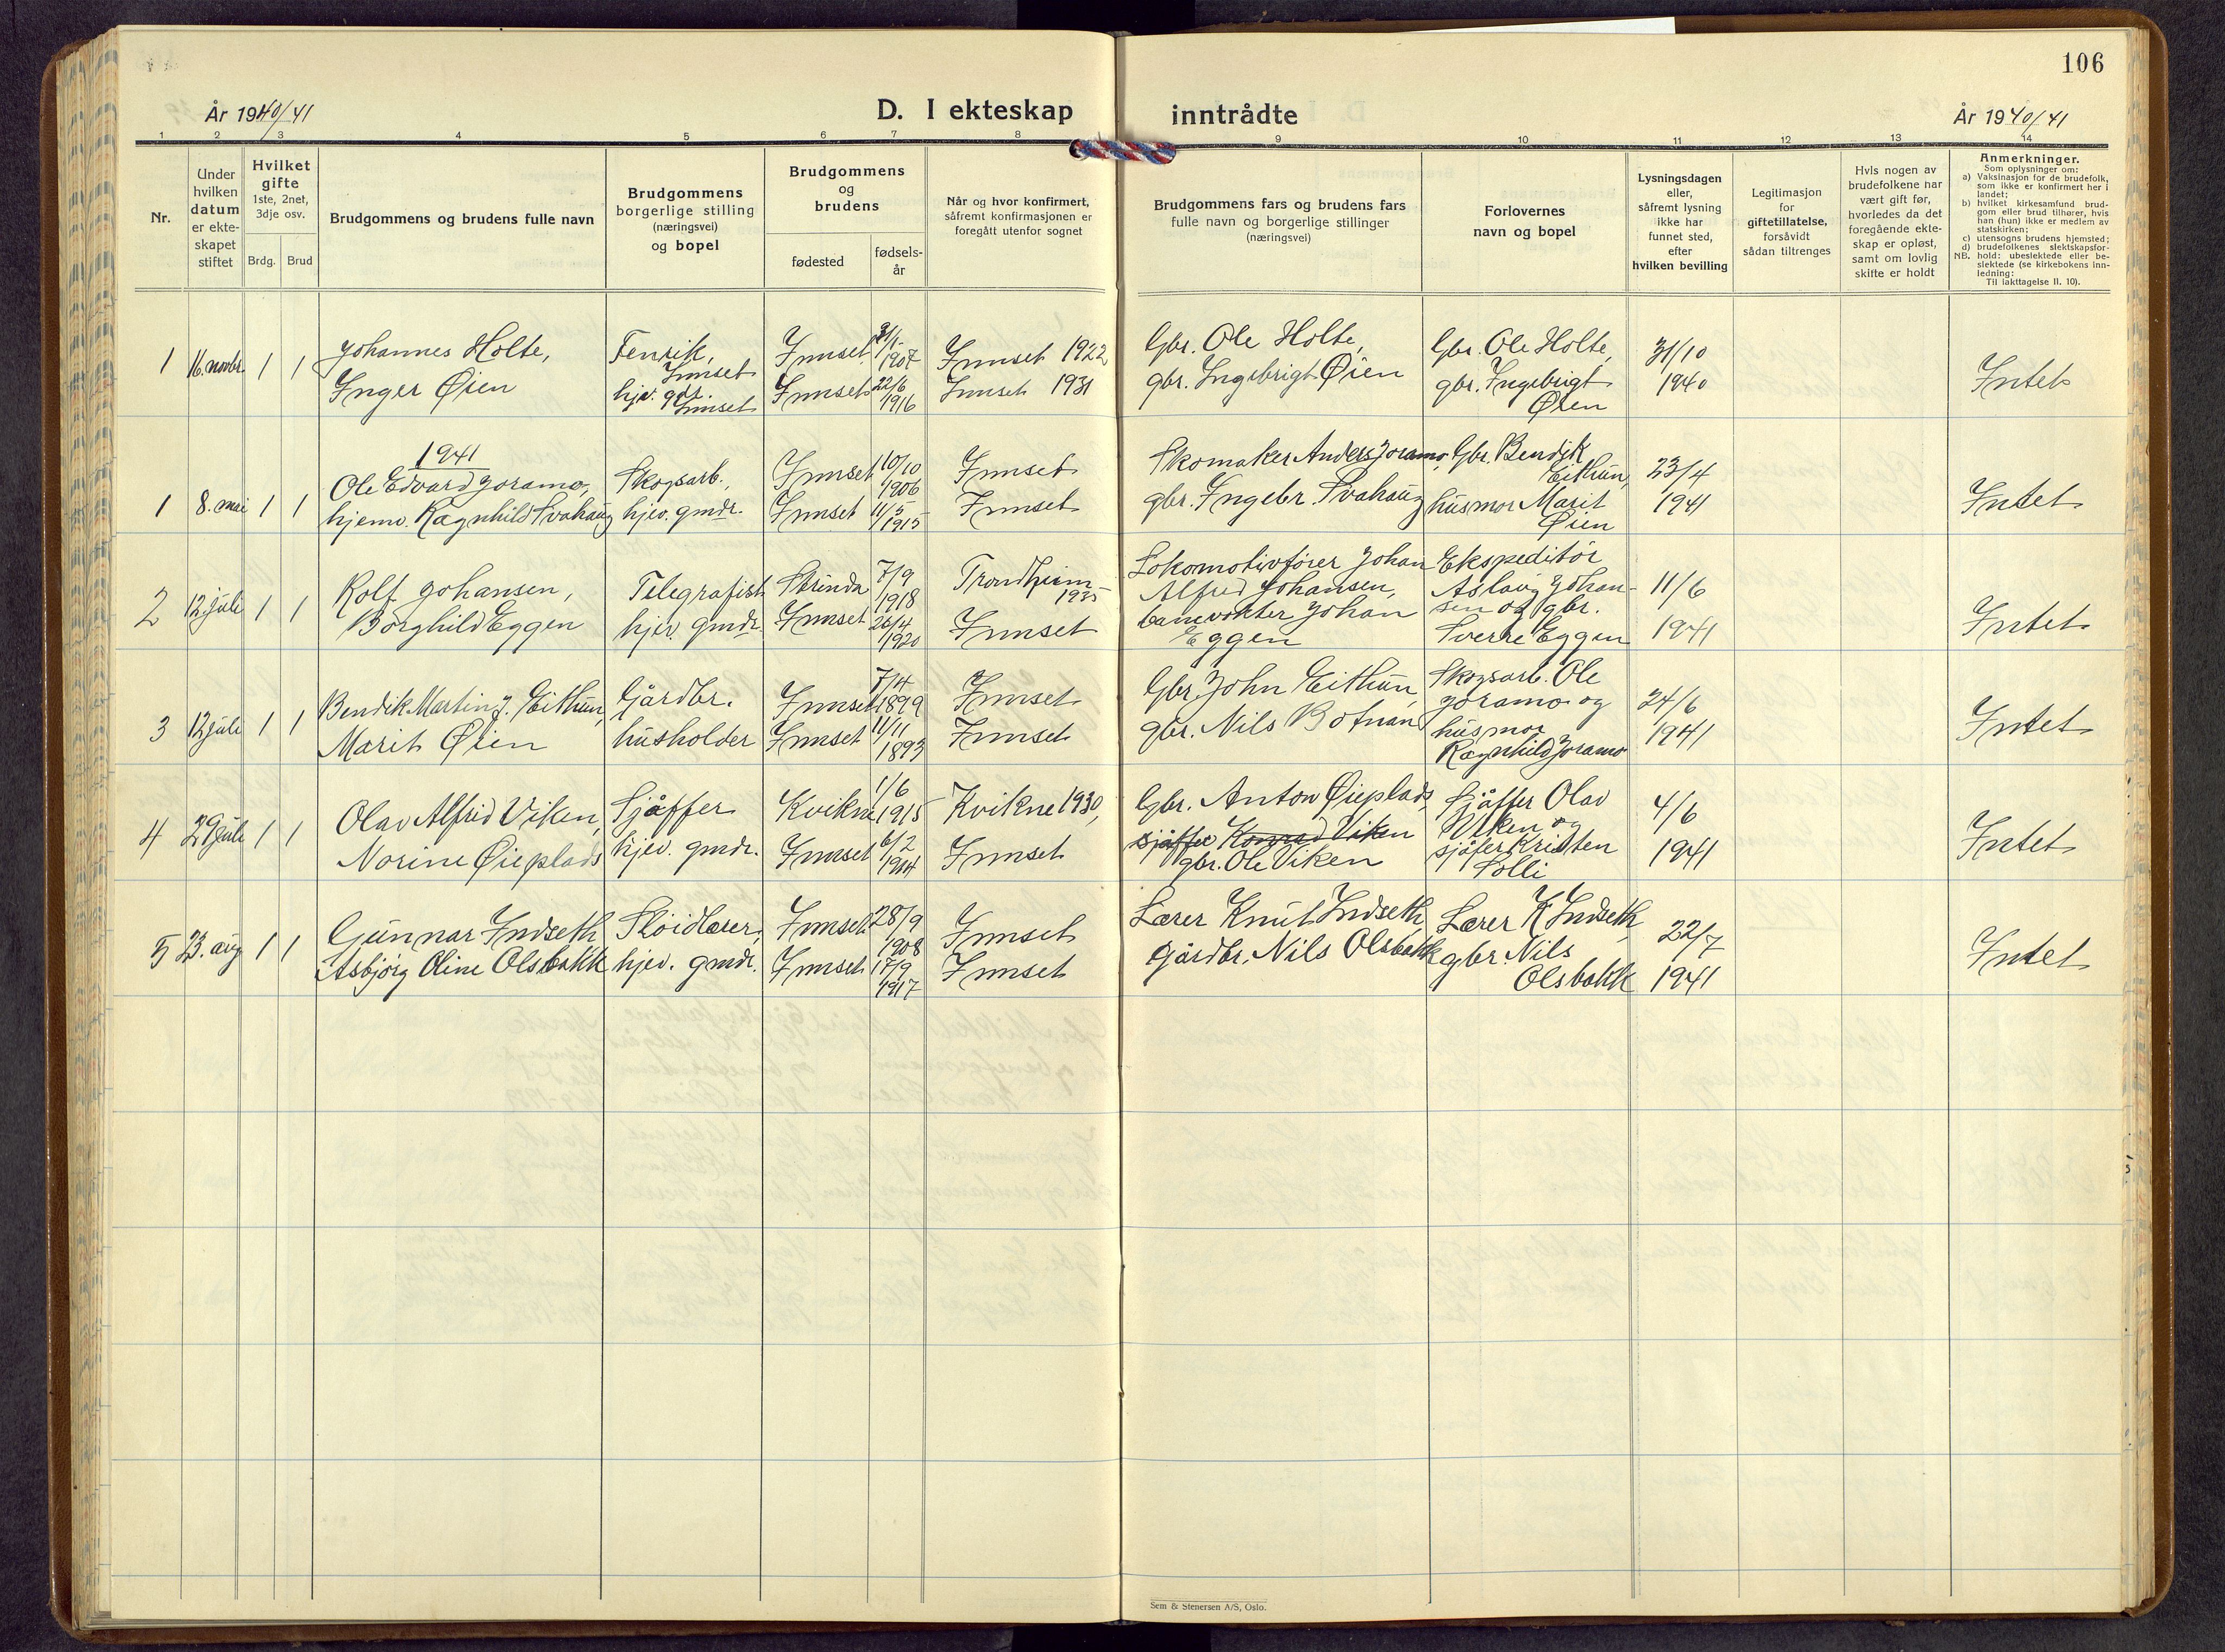 106
År 1940/41
D. I ekteskap inntrådte
År 1940/41
1 2 3 4 5 6 7 8 9 10 11 12 13 14
Nr.
Under hvilken datum er ekte-skapet stiftet
Hvilket gifte 1ste, 2net, 3dje osv.
Brdg. Brud
Brudgommens og brudens fulle navn
Brudgommens borgerlige stilling (næringsvei) og bopel
Brudgommens og brudens
fødested
fødsels-år
Når og hvor konfirmert, såfremt konfirmasjonen er foregått utenfor sognet
Brudgommens fars og brudens fars fulle navn og borgerlige stillinger (næringsvei)
Forlovernes navn og bopel
Lysningsdagen eller, såfremt lysning ikke har funnet sted, efter hvilken bevilling
Legitimasjon for giftetillatelse, forsåvidt sådan tiltrenges
Hvis nogen av brudefolkene har vært gift før, hvorledes da det foregående ekte-skap er opløst, samt om lovlig skifte er holdt
Anmerkninger.
Som oplysninger om:
a) Vaksinasjon for de brudefolk, som ikke er konfirmert her i landet;
b) hvilket kirkesamfund brud-gom eller brud tilhører, hvis han (hun) ikke er medlem av statskirken;
c) utensogns brudens hjemsted;
d) brudefolkenes slektskapsfor-hold: ubeslektede eller be-slektede (se kirkebokens inn-ledning:
NB.
Til iakttagelse II. 10).
1 16. novbr. 1 1
Johannes Holte,
Inger Øien
Fenrik, Innset
hjv. gdr. Innset
Innset 31/1 1907
Innset 22/6 1916
Innset 1922
Innset 1931
Gbr. Ole Holte,
gbr. Ingebrigt Øien
Gbr. Ole Holte,
gbr. Ingebrigt
Øien
31/10
1940
Intet
1941
1 8. mai 1 1
Ole Edvard Joramo,
hjemv. Ragnhild Svahaug
Skogsarb.,
hjev. gmdr.
Innset 10/10 1906
Innset 11/5 1915
Innset
Innset
Skomaker Anders Joramo,
gbr. Ingebr. Svahaug
Gbr. Bendik
Eithun,
husmor Marit
Øien
23/4
1941
Intet
2 12 juli 1 1
Rolf Johansen,
Borghild Eggen
Telegrafist
hjev. gmdr.
Strinda 7/9 1918
Innset 26/4 1920
Trondheim
1935
Innset
Lokomotivfører Johan
Alfred Johansen,
banevokter Johan
Eggen
Ekspeditør
Aslaug Johan-
sen og gbr.
Sverre Eggen
11/6
1941
Intet
3 12 juli 1 1
Bendik Martin J. Eithun,
Marit Øien
Gårdbr.
husholder
Innset 7/4 1899
Innset 11/11 1893
Innset
Innset
Gbr. John Eithun,
gbr. Nils Botnan
Skogsarb. Ole
Joramo og
husmor
Ragnhild Joramo
24/6
1941
Intet
4 29 juli 1 1
Olav Alfred Viken,
Norine Øieplads
Sjåffer
hjev. gmdr.
Kvikne 1/6 1915
Innset 6/2 1914
Kvikne 1930,
Innset
Gbr. Anton Øieplads,
sjåffer Konrad Viken
gbr. Ole Viken
Sjåffer Olav
Viken og
sjåfer Kristen
Solli
4/6
1941
Intet
5 23. aug 1 1
Gunnar Indseth
Asbjørg Oline Olsbakk
Sløidlærer,
hjev. gmdr.
Innset 28/9 1908
Innset 17/9 1917
Innset
Innset
Lærer Knut Indseth,
gårdbr. Nils Olsbakk
Lærer K Indseth,
gbr. Nils
Olsbakk
22/7
1941
Intet
Sem & Stenersen A/S, Oslo.